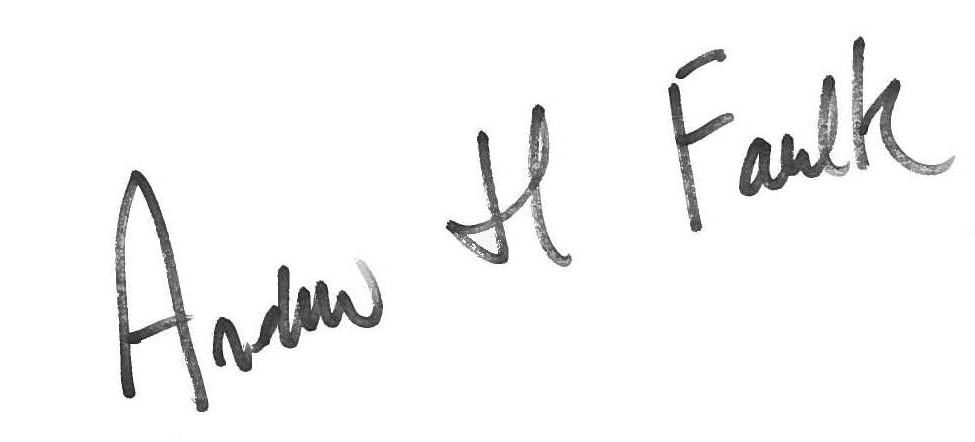 Andrew H Faulk